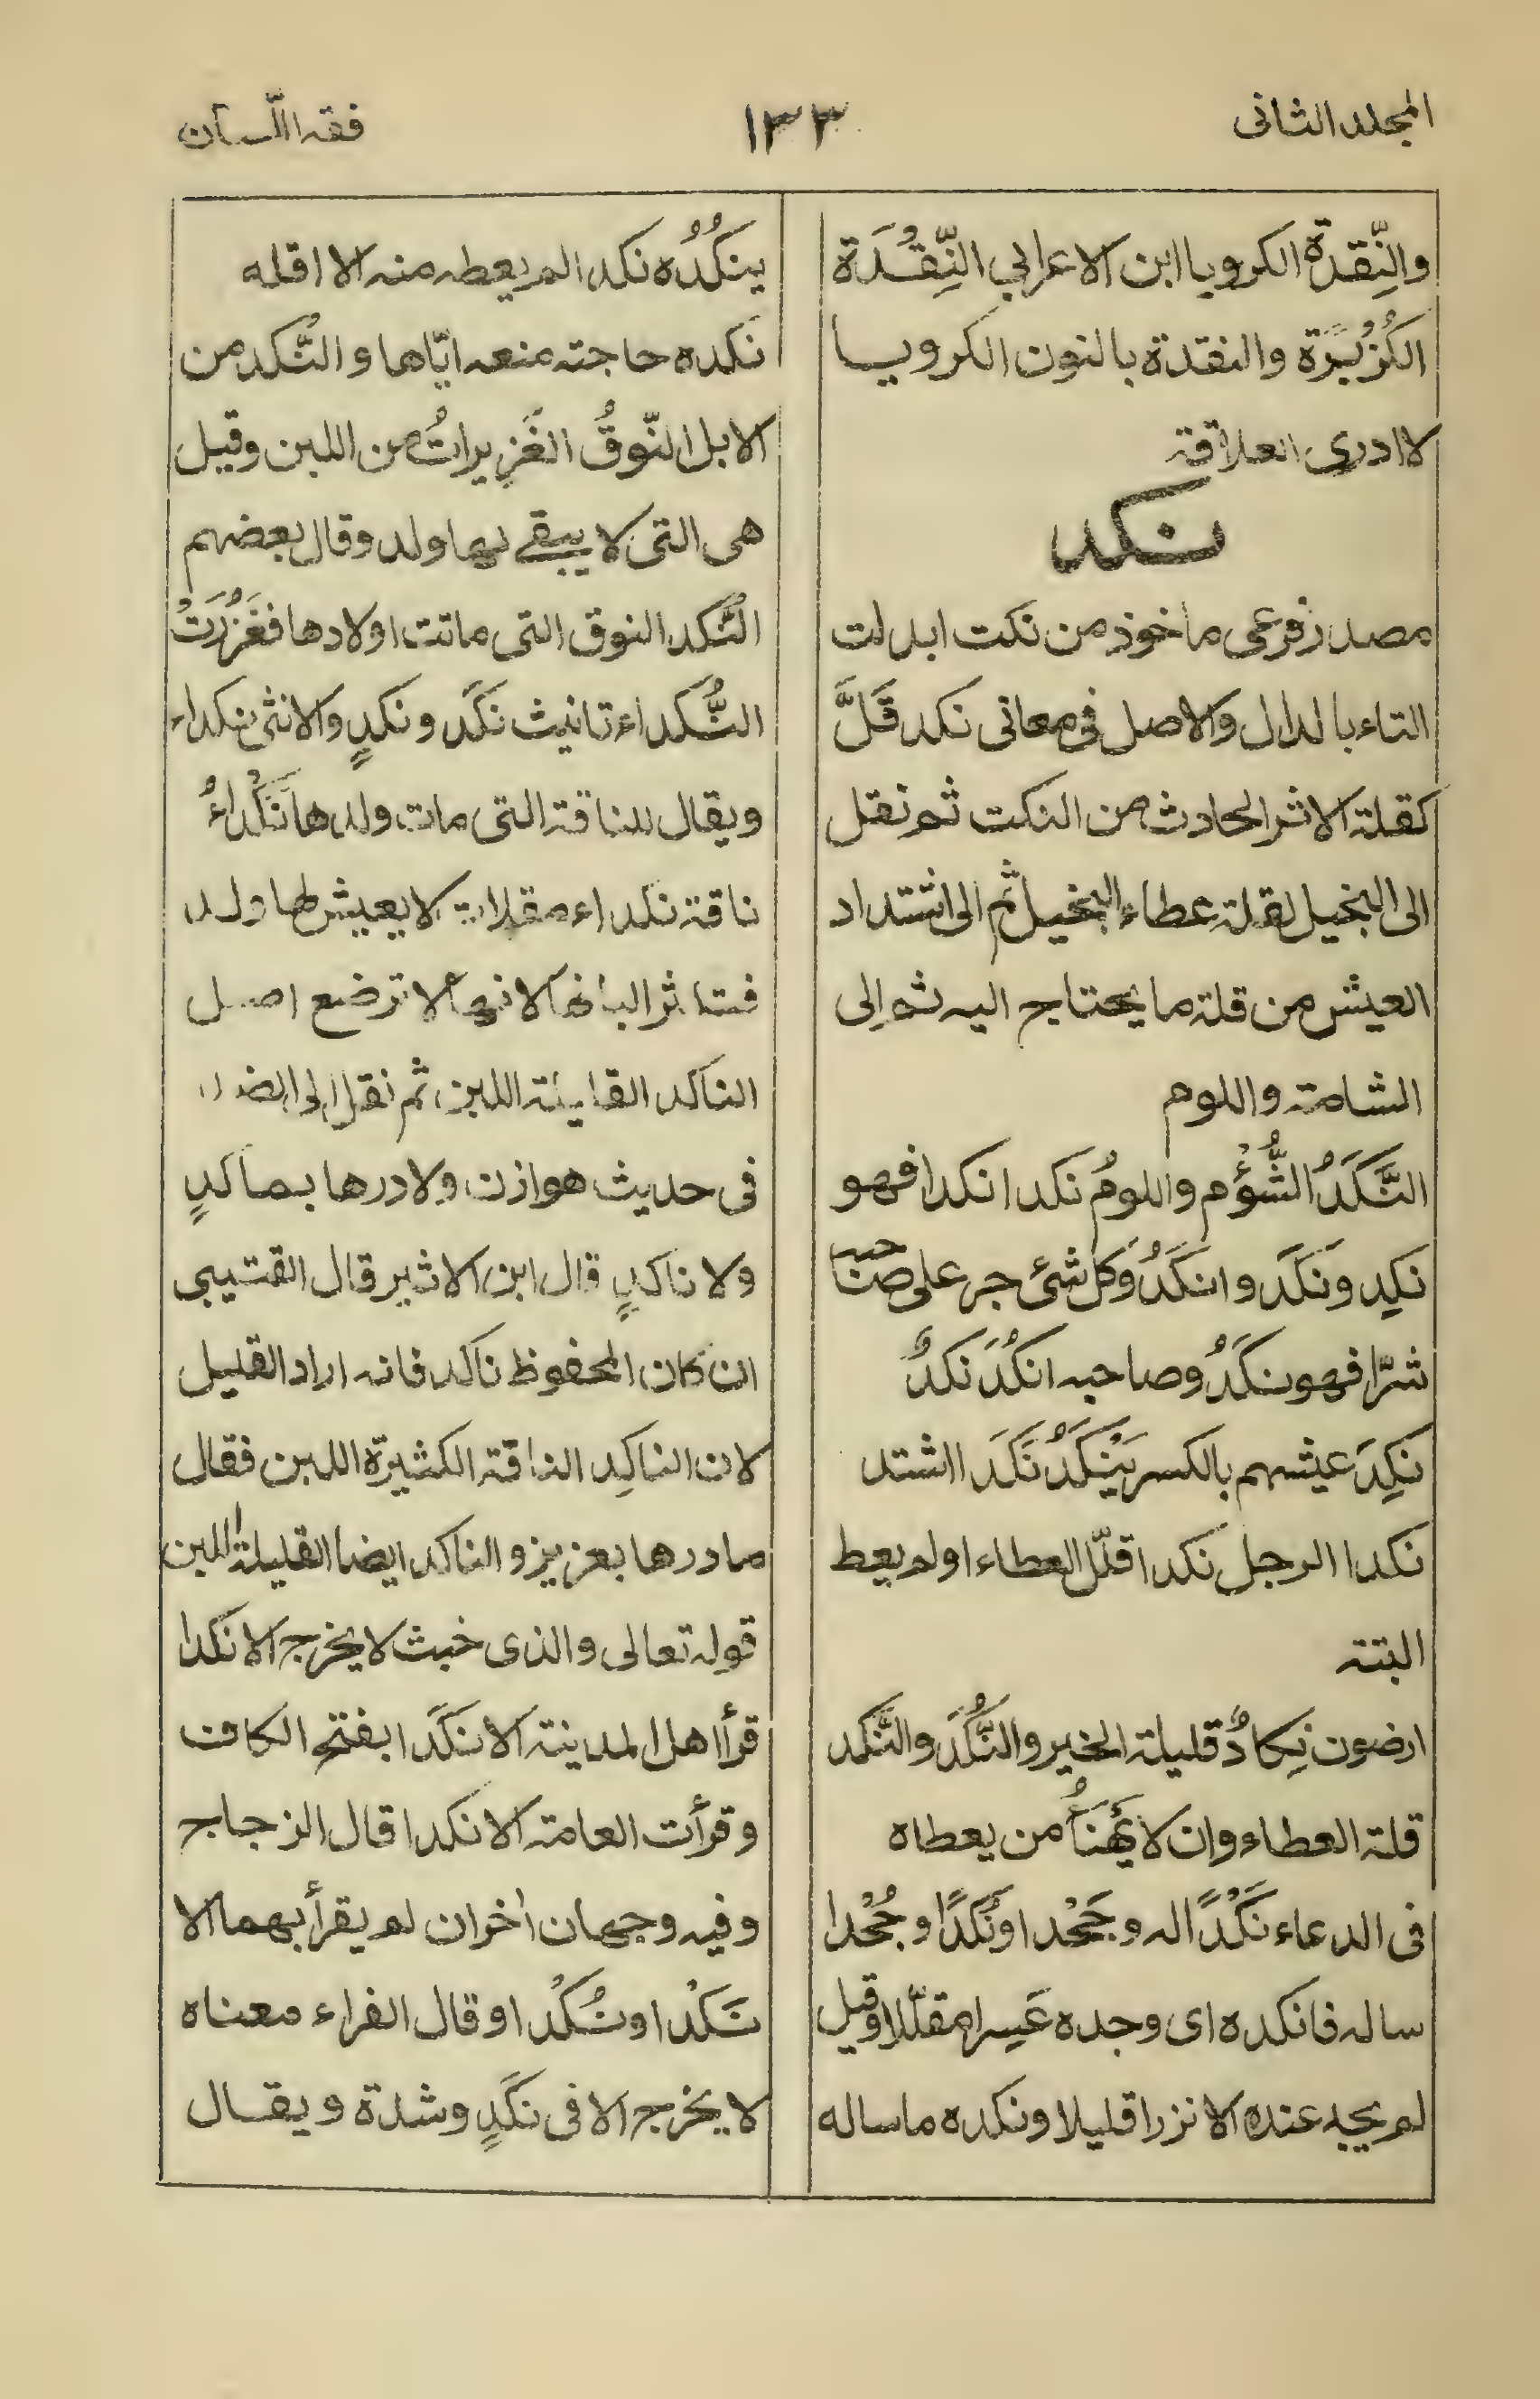 المجلد الثانى
١٣٣
فقه اللّسان
والنِّقدة الكرويا ابن الاعرابي النِّقْدَة
الكُزْبُرَة والنقدة بالنون الكرويا
لا ادرى العلاقة
نكد
مصدر فرعى ماخوذ من نكت ابدلت
التاء بالدال والاصل فى معانى نكد قَلَّ
كقلة الاثر الحادث من النكت ثم نقل
الى البخيل لقلة عطاء البخيل ثم الى اشتداد
العيش من قلة ما يحتاج اليه ثم إلى
الشامة واللوم
النَّكَدُ الشُّؤْم واللومُ نكدا نكدا فهو
نكِد ونَكَد وانكَدُ وكل شئ جر على صاحبه
شرّا فهو نكَدُ وصاحبه انكُدُ نَكدٌ
نكِدَ عيشهم بالكسر يَنْكَدُ نَكَدَا اشتد
نكدا الرجل نكدا قلّل العطاء او لم يعط
البتة
ارضون نِكادٌ قليلة الخير والنُّكْد والنَّكد
قلة العطاء وان لا يَهْنَأُ من يعطاه
فى الدعاء نَكْدًا له وجَحْدا ونُكْدًا وجُحْدا
ساله فانكده اى وجده عَسِرا مقلّلا وقيل
لم يجد عنده الا نزرا قليلا ونكده ما ساله
ينكُدُه نكدا لم يعطه منه الا اقله
نكده حاجته منعه ايّاها والنُّكد من
الابل النّوقُ الغَزِيراتُ من اللبن وقيل
هى التى لا يبقے لها ولد وقال بعضهم
النُّكد النوق التى ماتت اولادها فغَزُرَتْ
النُّكداء تانيث نكَد ونكدٍ والانثى نكداء
ويقال للناقة التى مات ولدها نَكْداءُ
ناقة نكداء مقلات لا يعيش لها ولد
فتاثر البانها لانها لا ترضع اصل
الناكد القليلة اللبن ثم نقل الى الضد
فى حديث هوازن ولا درها بماكدٍ
ولا ناكدٍ قال ابن الاثير قال القتيبى
ان كان المحفوظ ناكد فانه اراد القليل
لان الناكِد الناقة الكثيرة اللبن فقال
ما درها بعزيز والناكد ايضا القليلة اللبن
قوله تعالى والذى خبث لا يخرج الا نكدا
قرأ اهل المدينة الا نكَدا بفتح الكاف
وقرأت العامة الا نكدا قال الزجاج
وفيه وجهان أخران لم يقرأ بهما الا
نَكْدا ونُكْدا وقال الفراء معناه
لا يخرج الا فى نكَدٍ وشدة ويقال